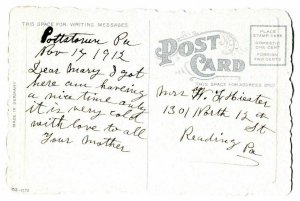 THIS SPACE FOR WRITING MESSAGES
Pottstown Pa
Nov 14 1912
Dear Mary I got
here am haveing
a nice time only
it is very cold
with love to all
Your Mother
MADE IN GERMANY
POST CARD
THIS SPACE FOR ADDRESS ONLY
PLACE
STAMP HERE
DOMESTIC
ONE CENT
FOREIGN
TWO CENTS
Mrs H. F. Hiester
1301 North 12 th
St
Reading
Pa